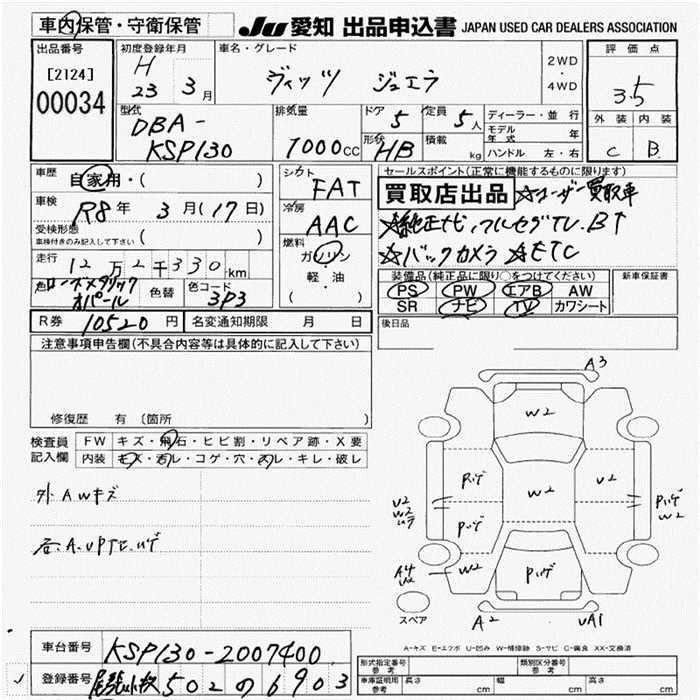 車内保管・守衛保管
JU 愛知 出品申込書 JAPAN USED CAR DEALERS ASSOCIATION
出品番号
[2124]
00034
初度登録年月
H 23 3月
車名・グレード
ヴィッツ ジュエラ
2WD
・
4WD
評価点
3.5
外装 内装
C B
型式
DBA-
KSP130
排気量
1000cc
ドア
5
定員
5人
形状
HB
積載
kg
ディーラー・並行
モデル年式 年
ハンドル 左・右
車歴
自家用・( )
車検
R8年 3月(17日)
受検形態
車検付きのみ記入して下さい ( )
走行
12万2千330km
色 ローズメタリックオパール
色替
色コード
3P3
シフト
FAT
冷房
AAC
燃料
ガソリン
・
軽・油
( )
セールスポイント(正常に機能するものに限ります)
買取店出品 ☆ユーザー買取車
☆純正ナビ、フルセグTV、BT
☆バックカメラ ☆ETC
装備品(純正品に限り○をつけてください)
PS PW エアB AW
SR ナビ TV カワシート
新車保証書
後日品
R券 10520円
名変通知期限 月 日
注意事項申告欄(不具合内容等は具体的に記入して下さい)
修復歴 有 (箇所
検査員記入欄
FW キズ・飛石・ヒビ割・リペア跡・X要
内装 キズ・汚レ・コゲ・穴・スレ・キレ・破レ
外、AWキズ
A3
W2
Pハゲ
W2
U2
Pハゲ
U2
Pハゲ
W2
A4
U2
W2
Pハゲ
A2
UA1
スペア
A-キズ E-エクボ U-凹み W-補修跡 S-サビ C-腐食 XX-交換済
車台番号
KSP130-2007400
登録番号
尾張小牧 502 の 6903
形式指定番号
参考
類別区分番号
参考
車庫証明用
参考
長さ cm
幅 cm
高さ cm